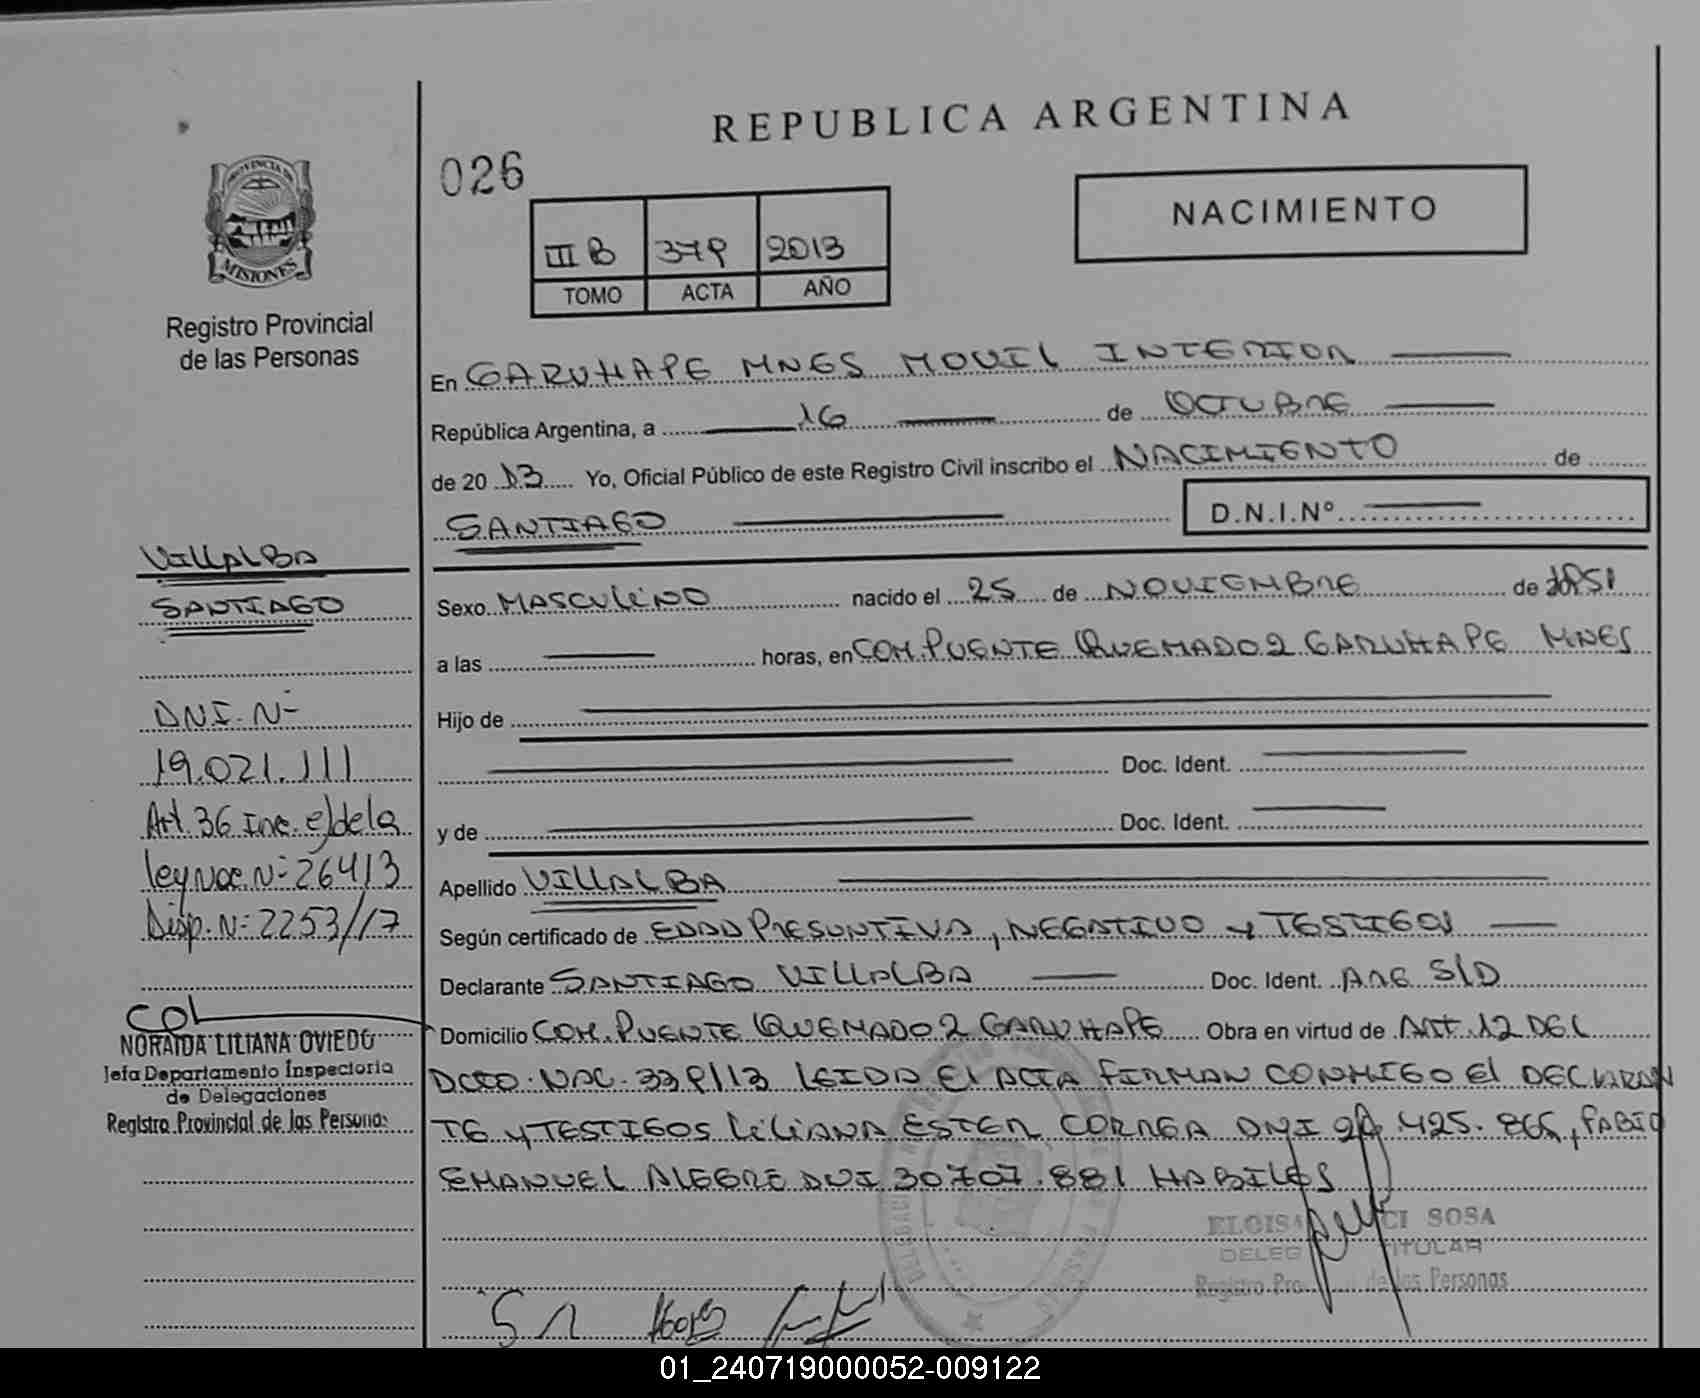 REPUBLICA ARGENTINA
026
NACIMIENTO
III B 379 2013
TOMO ACTA AÑO
PROVINCIA DE
MISIONES
Registro Provincial
de las Personas
VILLALBA
SANTIAGO
DNI. N-
19.021.111
Art. 36 Inc. e) de la
ley Nac. N- 26413
Disp. N- 2253/17
NORAIDA LILIANA OVIEDO
Jefa Departamento Inspectoria
de Delegaciones
Registro Provincial de las Personas
En GARUHAPE MNES MOVIL INTERIOR
República Argentina, a 16 de OCTUBRE
de 20 13 Yo, Oficial Público de este Registro Civil inscribo el NACIMIENTO de
SANTIAGO D.N.I.Nº
Sexo MASCULINO nacido el 25 de NOVIEMBRE de 1951
a las horas, en COM. PUENTE QUEMADO 2 GARUHAPE MNES
Hijo de
Doc. Ident.
y de Doc. Ident.
Apellido VILLALBA
Según certificado de EDAD PRESUNTIVA, NEGATIVO Y TESTIGOS
Declarante SANTIAGO VILLALBA Doc. Ident. ARG S/D
Domicilio COM. PUENTE QUEMADO 2 GARUHAPE Obra en virtud de ART. 12 DEL
DCTO. NAC. 339/13 LEIDA El ACTA FIRMAN CONMIGO El DECLARAN
TE y TESTIGOS LILIANA ESTER CORREA DNI 425. 865, FABIO
EMANUEL ALEGRE DNI 30707.881 HABILES
ELOISA SOSA
DELEG TITULAR
Registro Pro de las Personas
01_240719000052-009122